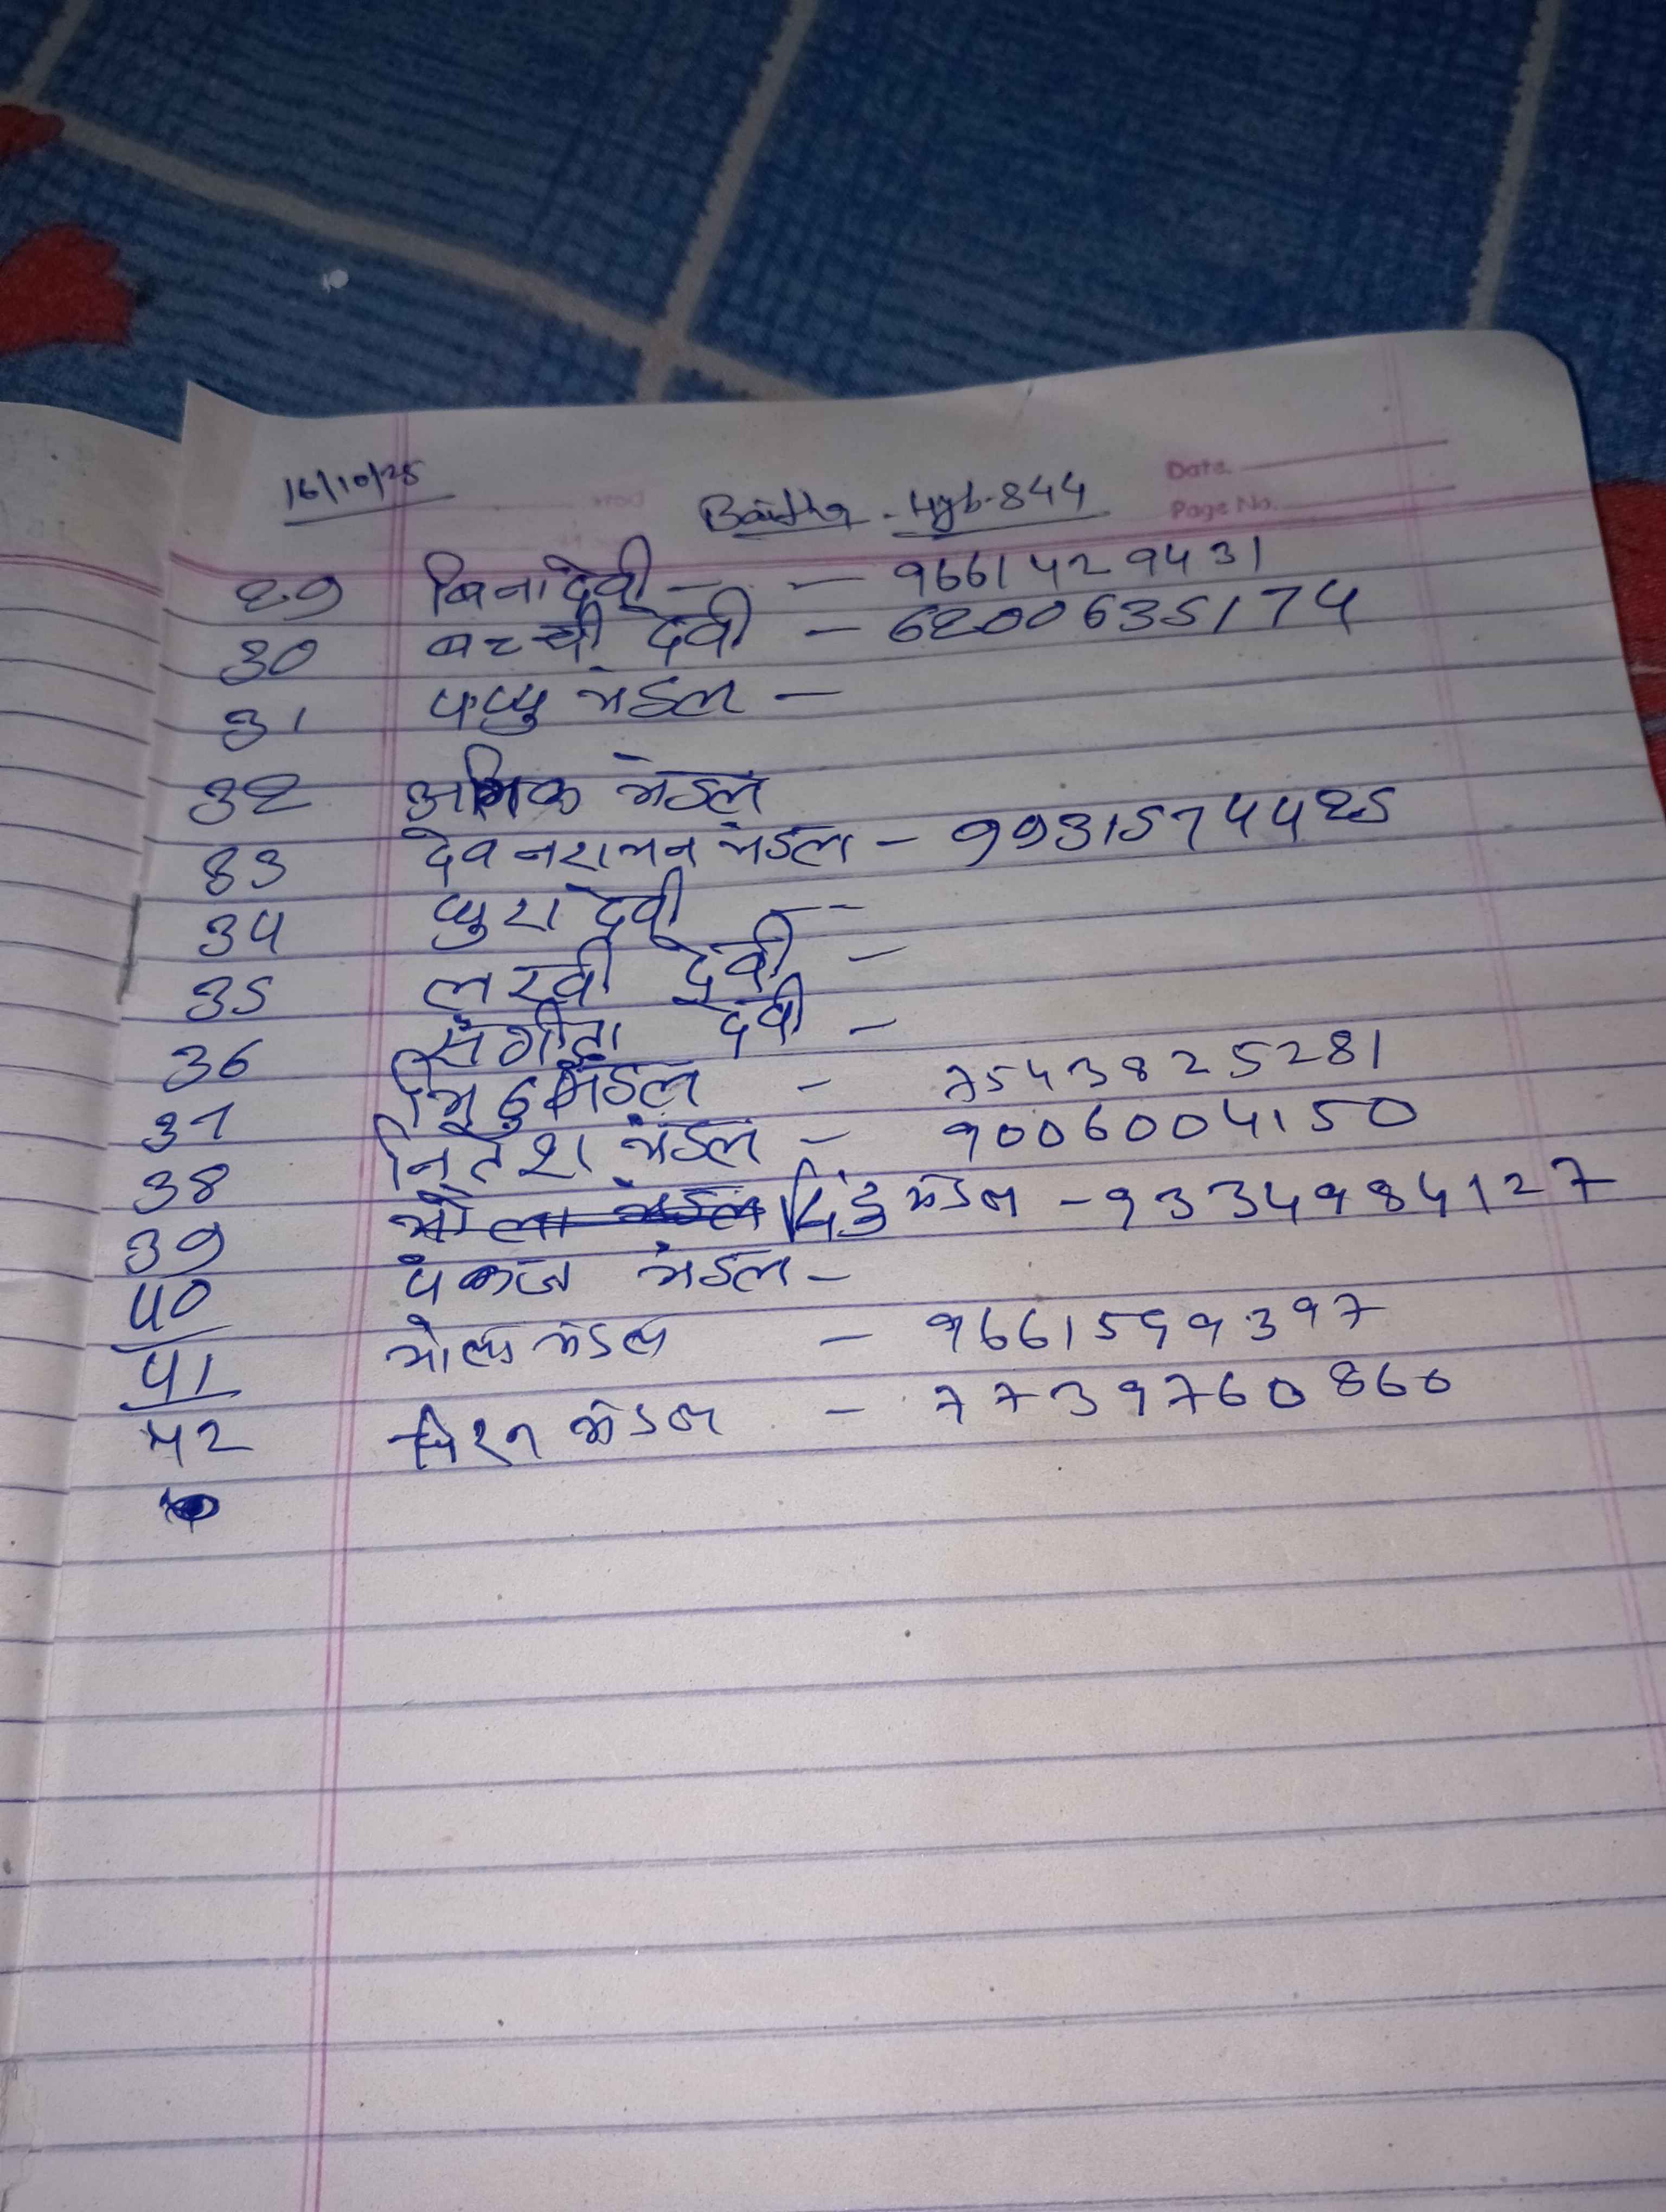 16/10/25
Baitha - Hyb-844
Date.
Page No.
29 बिना देवी - - 9661429431
30 बच्ची देवी - 6200635174
31 पप्पु मंडल -
32 मंडल
33 देव नरायन मंडल - 9931574425
34 देवी --
35 लखी देवी -
36 संगीता देवी -
37 मंडल - 7543825281
38 नितेश मंडल - 9006004150
39 भोला मंडल पिंटु मंडल - 9334984127
40 पंकज मंडल -
41 भोला मंडल - 9661599397
42 मंडल - 7739760860